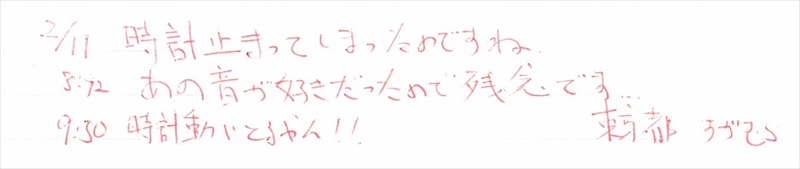 2/11 時計止まってしまったのですね
8:72 あの音が好きだったので残念です...
9:30 時計動いてるやん!! 東京都